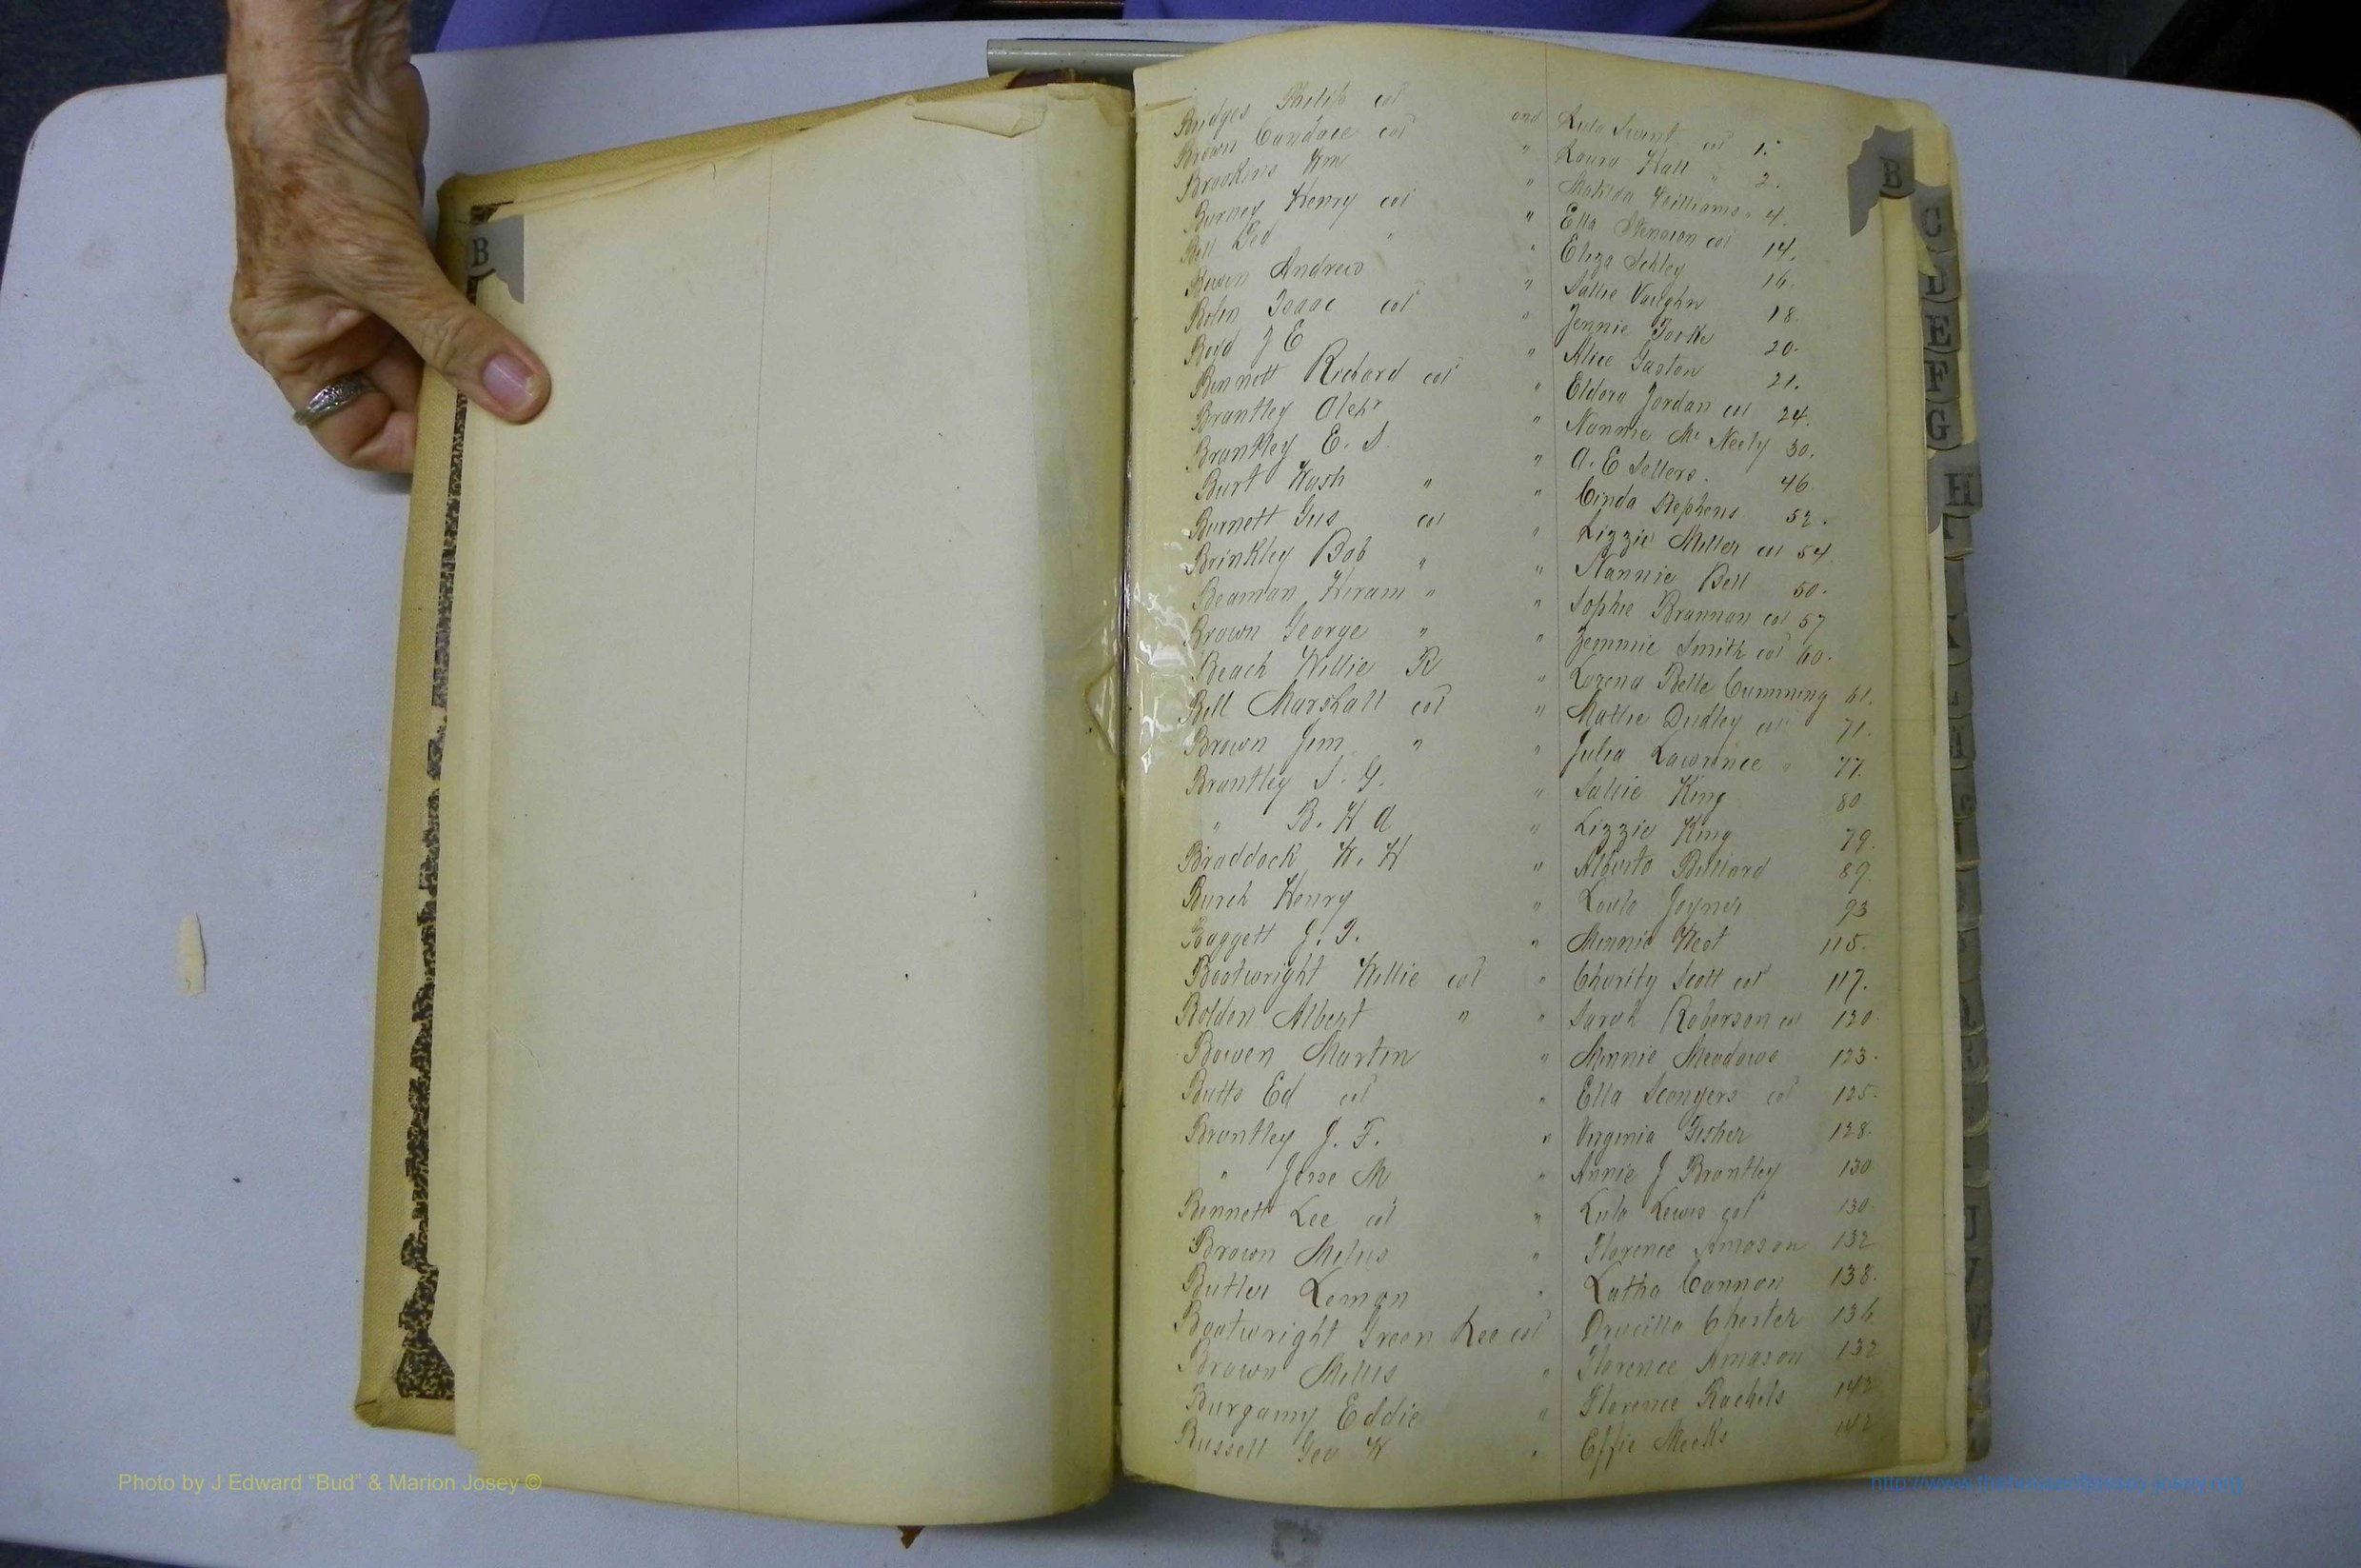 B
B
C
D
E
F
G
H
Bridges Philip col and Lula Swint col 1.
Brown Candace col " Laura Hall " 2.
Brookins Wm " Matilda Williams " 4.
Burney Henry col " Ella Stenson col 14.
Bell Ged " " Eliza Schley 16.
Bowen Andrew " Sallie Vaughn 18.
Bolen Isaac col " Jennie Yorke 20.
Boyd J E " Alice Gaston 21.
Bennett Richard col " Eldora Jordan col 24.
Brantley " Nannie Mc Neely 30.
Brantley E. S. " A. E Sellers. 46
Burt Wash " " Cinda Stephens 52.
Burnett Gus col " Lizzie Miller col 54
Brinkley Bob " " Nannie Bell 50.
Beaman Hiram " " Sophie Brannan col 57
Brown George " " Jemmie Smith col 60.
Beach Willie R " Lorena Belle Cumming 61.
Bell Marshall col " Mattie Dudley col 71.
Brown Jim " " Julia Lawrence " 77.
Brantley S. G. " Sallie King 80
" B. H A " Lizzie King 79.
Braddock W. H " Alberta Billiard 89.
Burch Henry " Loula Joyner 93
Baggett J. T. " Minnie West 115.
Boatwright Willie col " Charity Scott col 117.
Bolden Albert " " Sarah Roberson col 120.
Bowen Martin " Minnie Meadows 123.
Butts Ed col " Ella Scongers col 125.
Brantley J. F. " Virginia Fisher 128.
" Jesse M " Annie J Brantley 130
Bennett Lee col " Lula Lewis col 130.
Brown Milus " Florence Amason 132
Butler Lemon " Latha Cannon 138.
Boatwright Green Lee col Drucilla Chester 136.
Brown Millis " Florence Amason 132
Burgamy Eddie " Florence Rachels 142
Bussell Geo W " Effie Meeks 142
U
V
W
Photo by J Edward "Bud" & Marion Josey ©